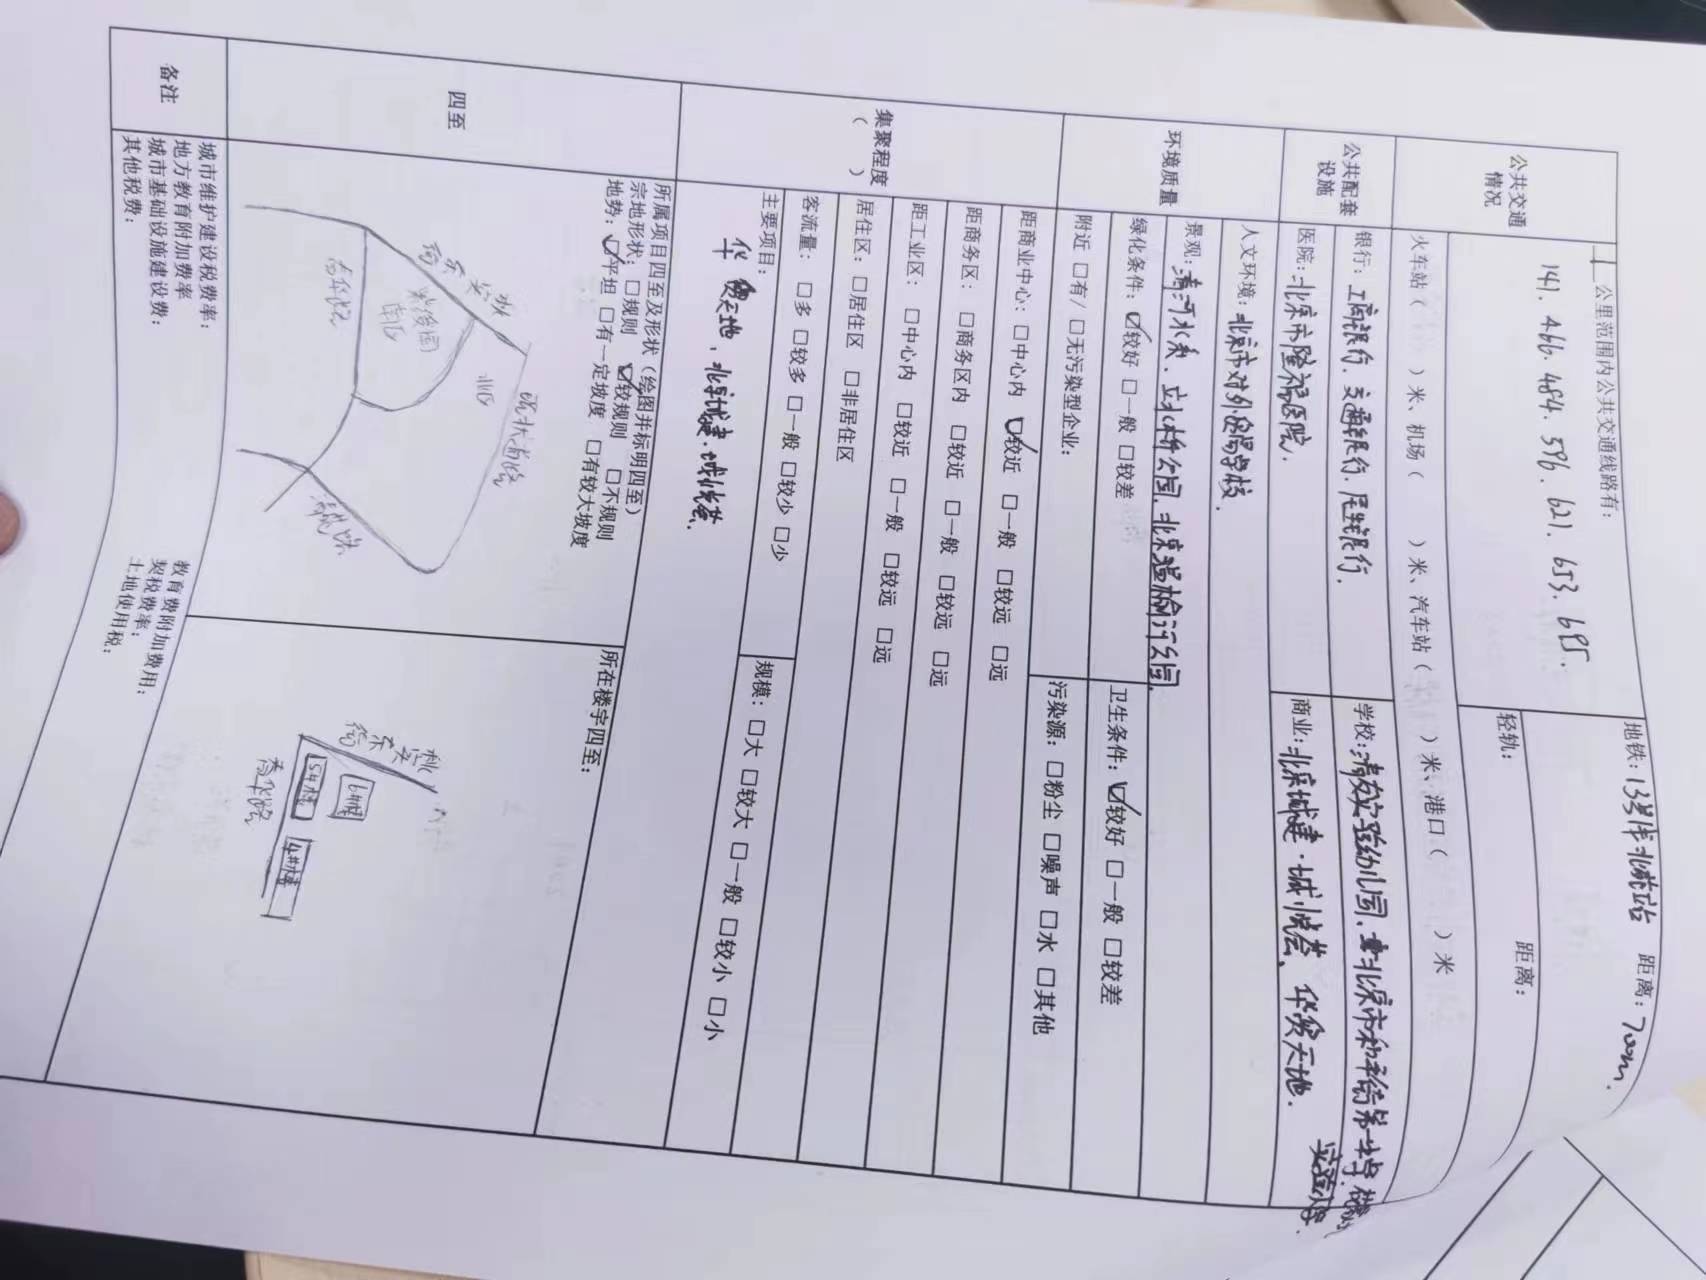 公共交通情况
1公里范围内公共交通线路有：
141. 466. 484. 596. 621. 653. 695.
地铁：13号线北苑站 距离：700m.
轻轨： 距离：
火车站（ ）米、机场（ ）米、汽车站（ ）米、港口（ ）米
公共配套设施
银行：工商银行、交通银行、民生银行.
学校：清友实验幼儿园、北京市和平街第一中学
实验小学.
医院：北京市隆福医院.
商业：北京城建·城悦荟、华贸天地.
环境质量
人文环境：北京市对外贸易学校.
景观：清河水系、立水桥公园、北京温榆河公园.
绿化条件：☑较好 □一般 □较差
卫生条件：☑较好 □一般 □较差
附近 □有/ □无污染型企业：
污染源：□粉尘 □噪声 □水 □其他
集聚程度
（ ）
距商业中心：□中心内 ☑较近 □一般 □较远 □远
距商务区：□商务区内 □较近 □一般 □较远 □远
距工业区：□中心内 □较近 □一般 □较远 □远
居住区：□居住区 □非居住区
客流量：□多 □较多 □一般 □较少 □少
规模：□大 □较大 □一般 □较小 □小
主要项目：
华贸天地、北京城建·城悦荟.
四至
所属项目四至及形状（绘图并标明四至）
宗地形状：□规则 ☑较规则 □不规则
地势：☑平坦 □有一定坡度 □有较大坡度
秋实东街
现状道路
北区
南区
清苑路
所在楼宇四至：
秋实东街
6#楼
5#楼
4#楼
备注
城市维护建设税费率：
教育费附加费用：
地方教育附加费率
契税费率：
城市基础设施建设费：
土地使用税：
其他税费：